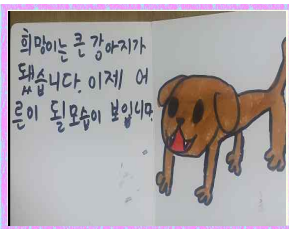 희망이는 큰 강아지가
됐습니다. 이제 어
른이 될 모습이 보입니다.